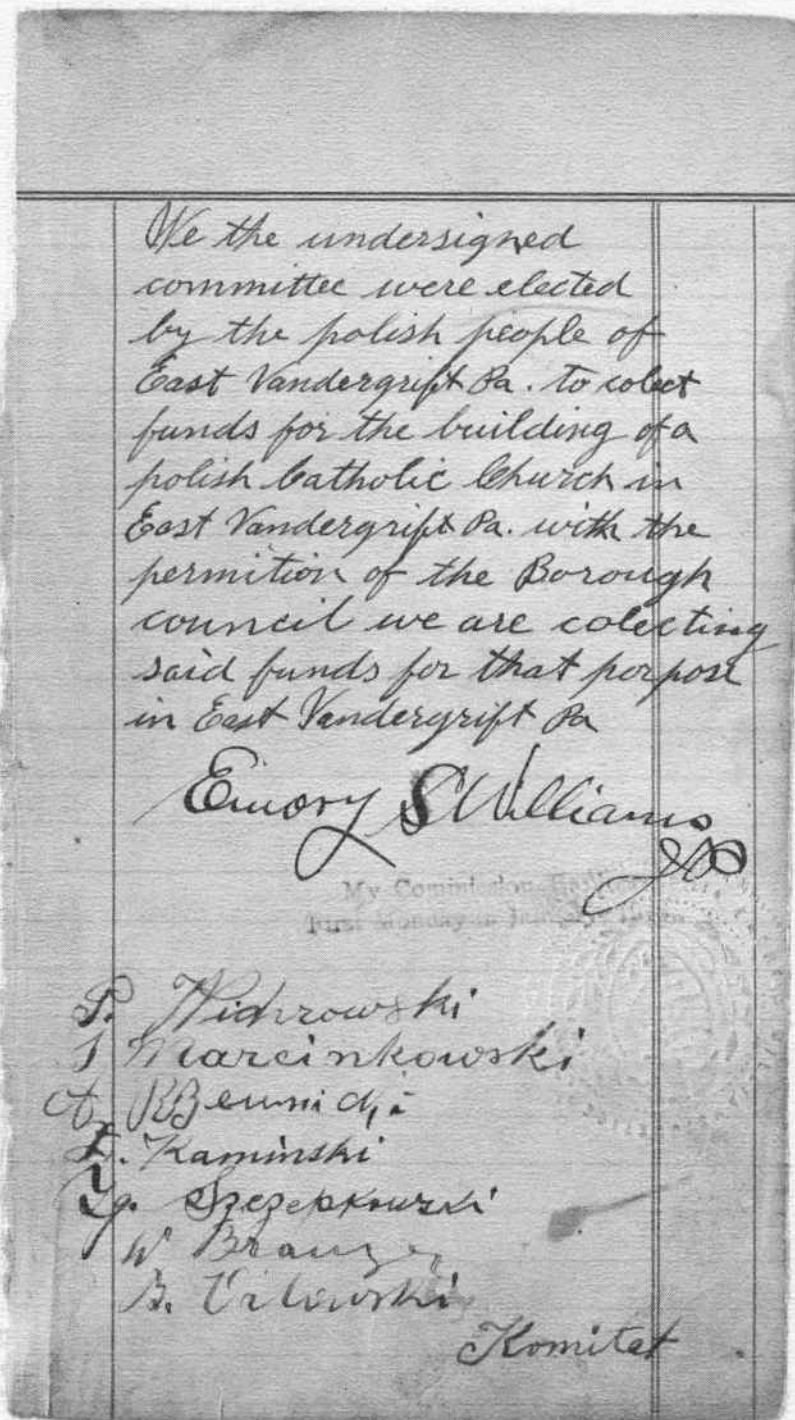 We the undersigned
committee were elected
by the polish people of
East Vandergrift Pa. to colect
funds for the building of a
polish Catholic Church in
East Vandergrift Pa. with the
permition of the Borough
council we are colecting
said funds for that porpose
in East Vandergrift Pa
Emory S Williams
JP
My Commission
First Monday in
P.
S Marcinkowski
A.
Kaminski
Szczepkowski
W
B.
Komitet